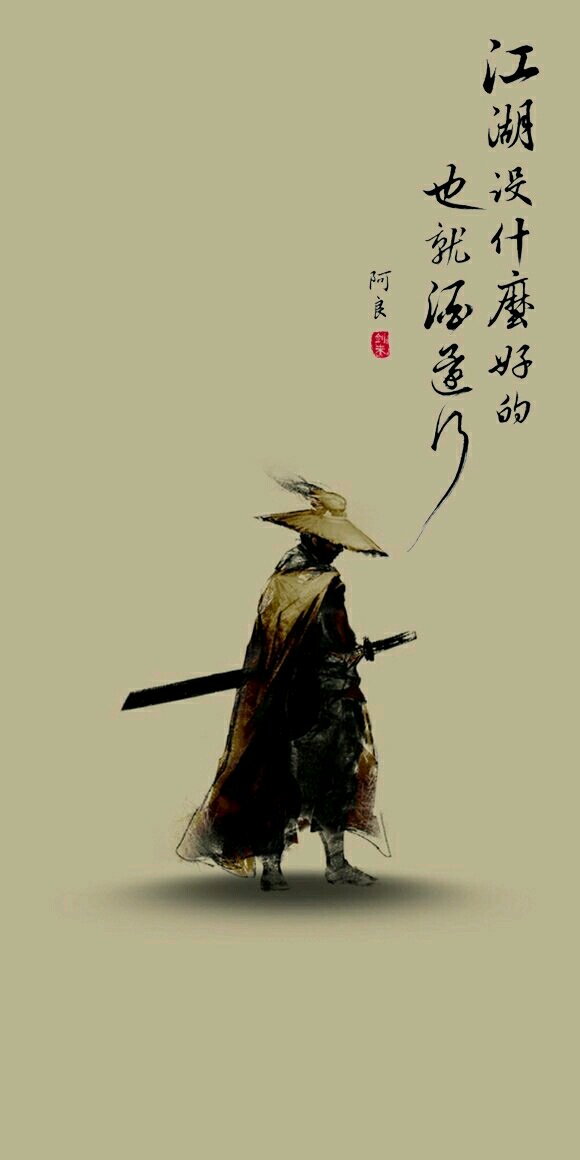 江湖没什麼好的
也就酒還行
阿良
剑来